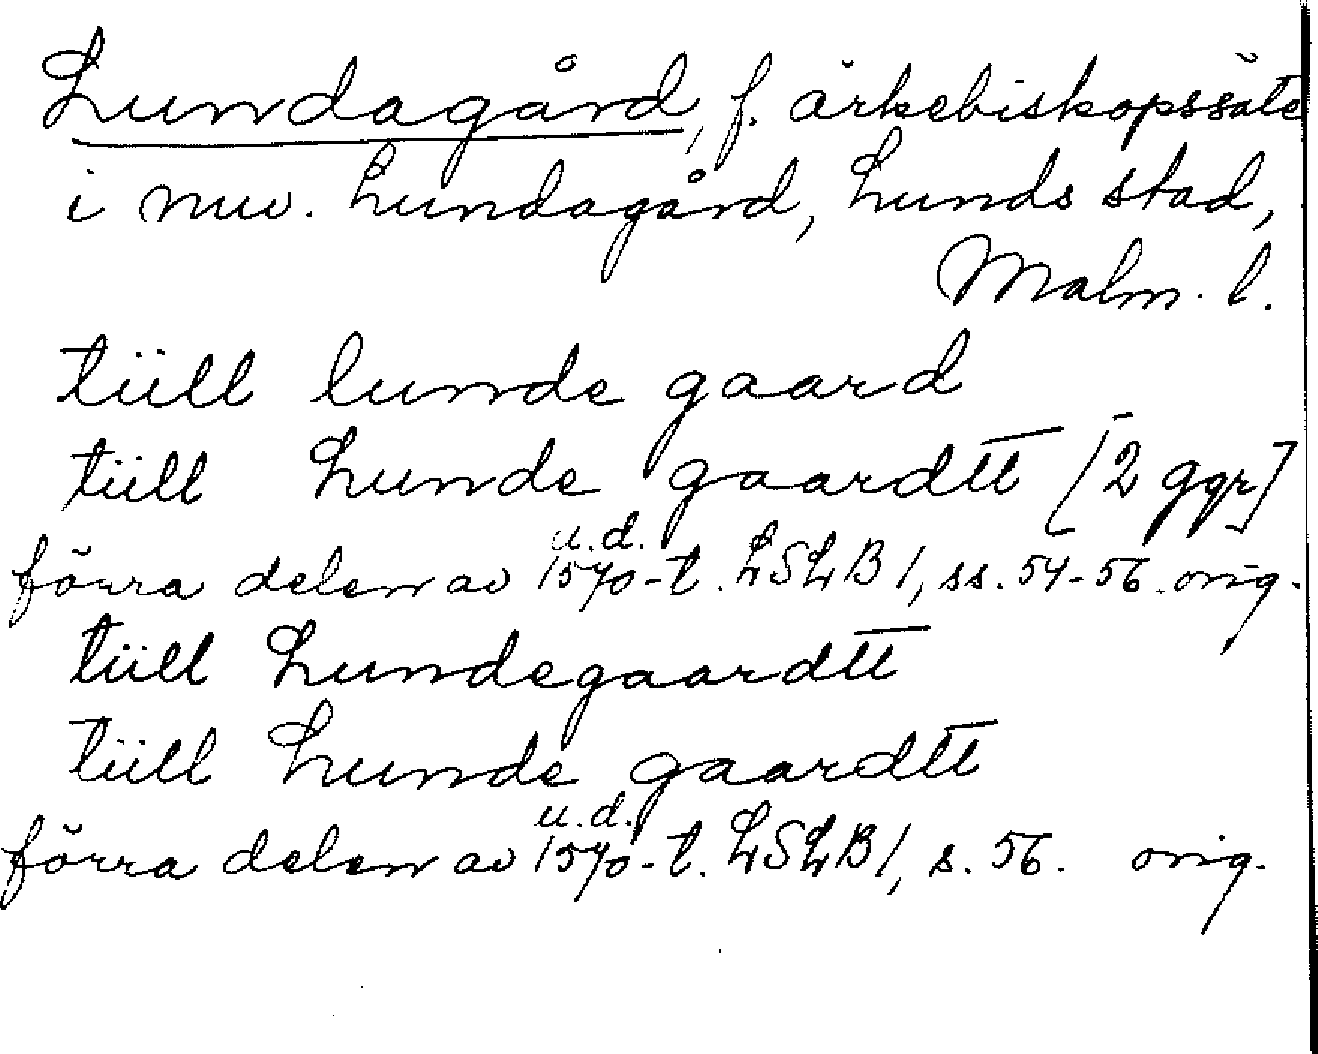 Lundagård, f. ärkebiskopssäte
i nuv. Lundagård, Lunds stad,
Malm. l.
tiill lunde gaard
tiill Lunde gaardtt [2 ggr]
u.d.
förra delen av 1570-t. LSLB 1, ss. 54-56. orig.
tiill Lundegaardtt
tiill Lunde gaardtt
u.d.
förra delen av 1570-t. LSLB 1, s. 56. orig.